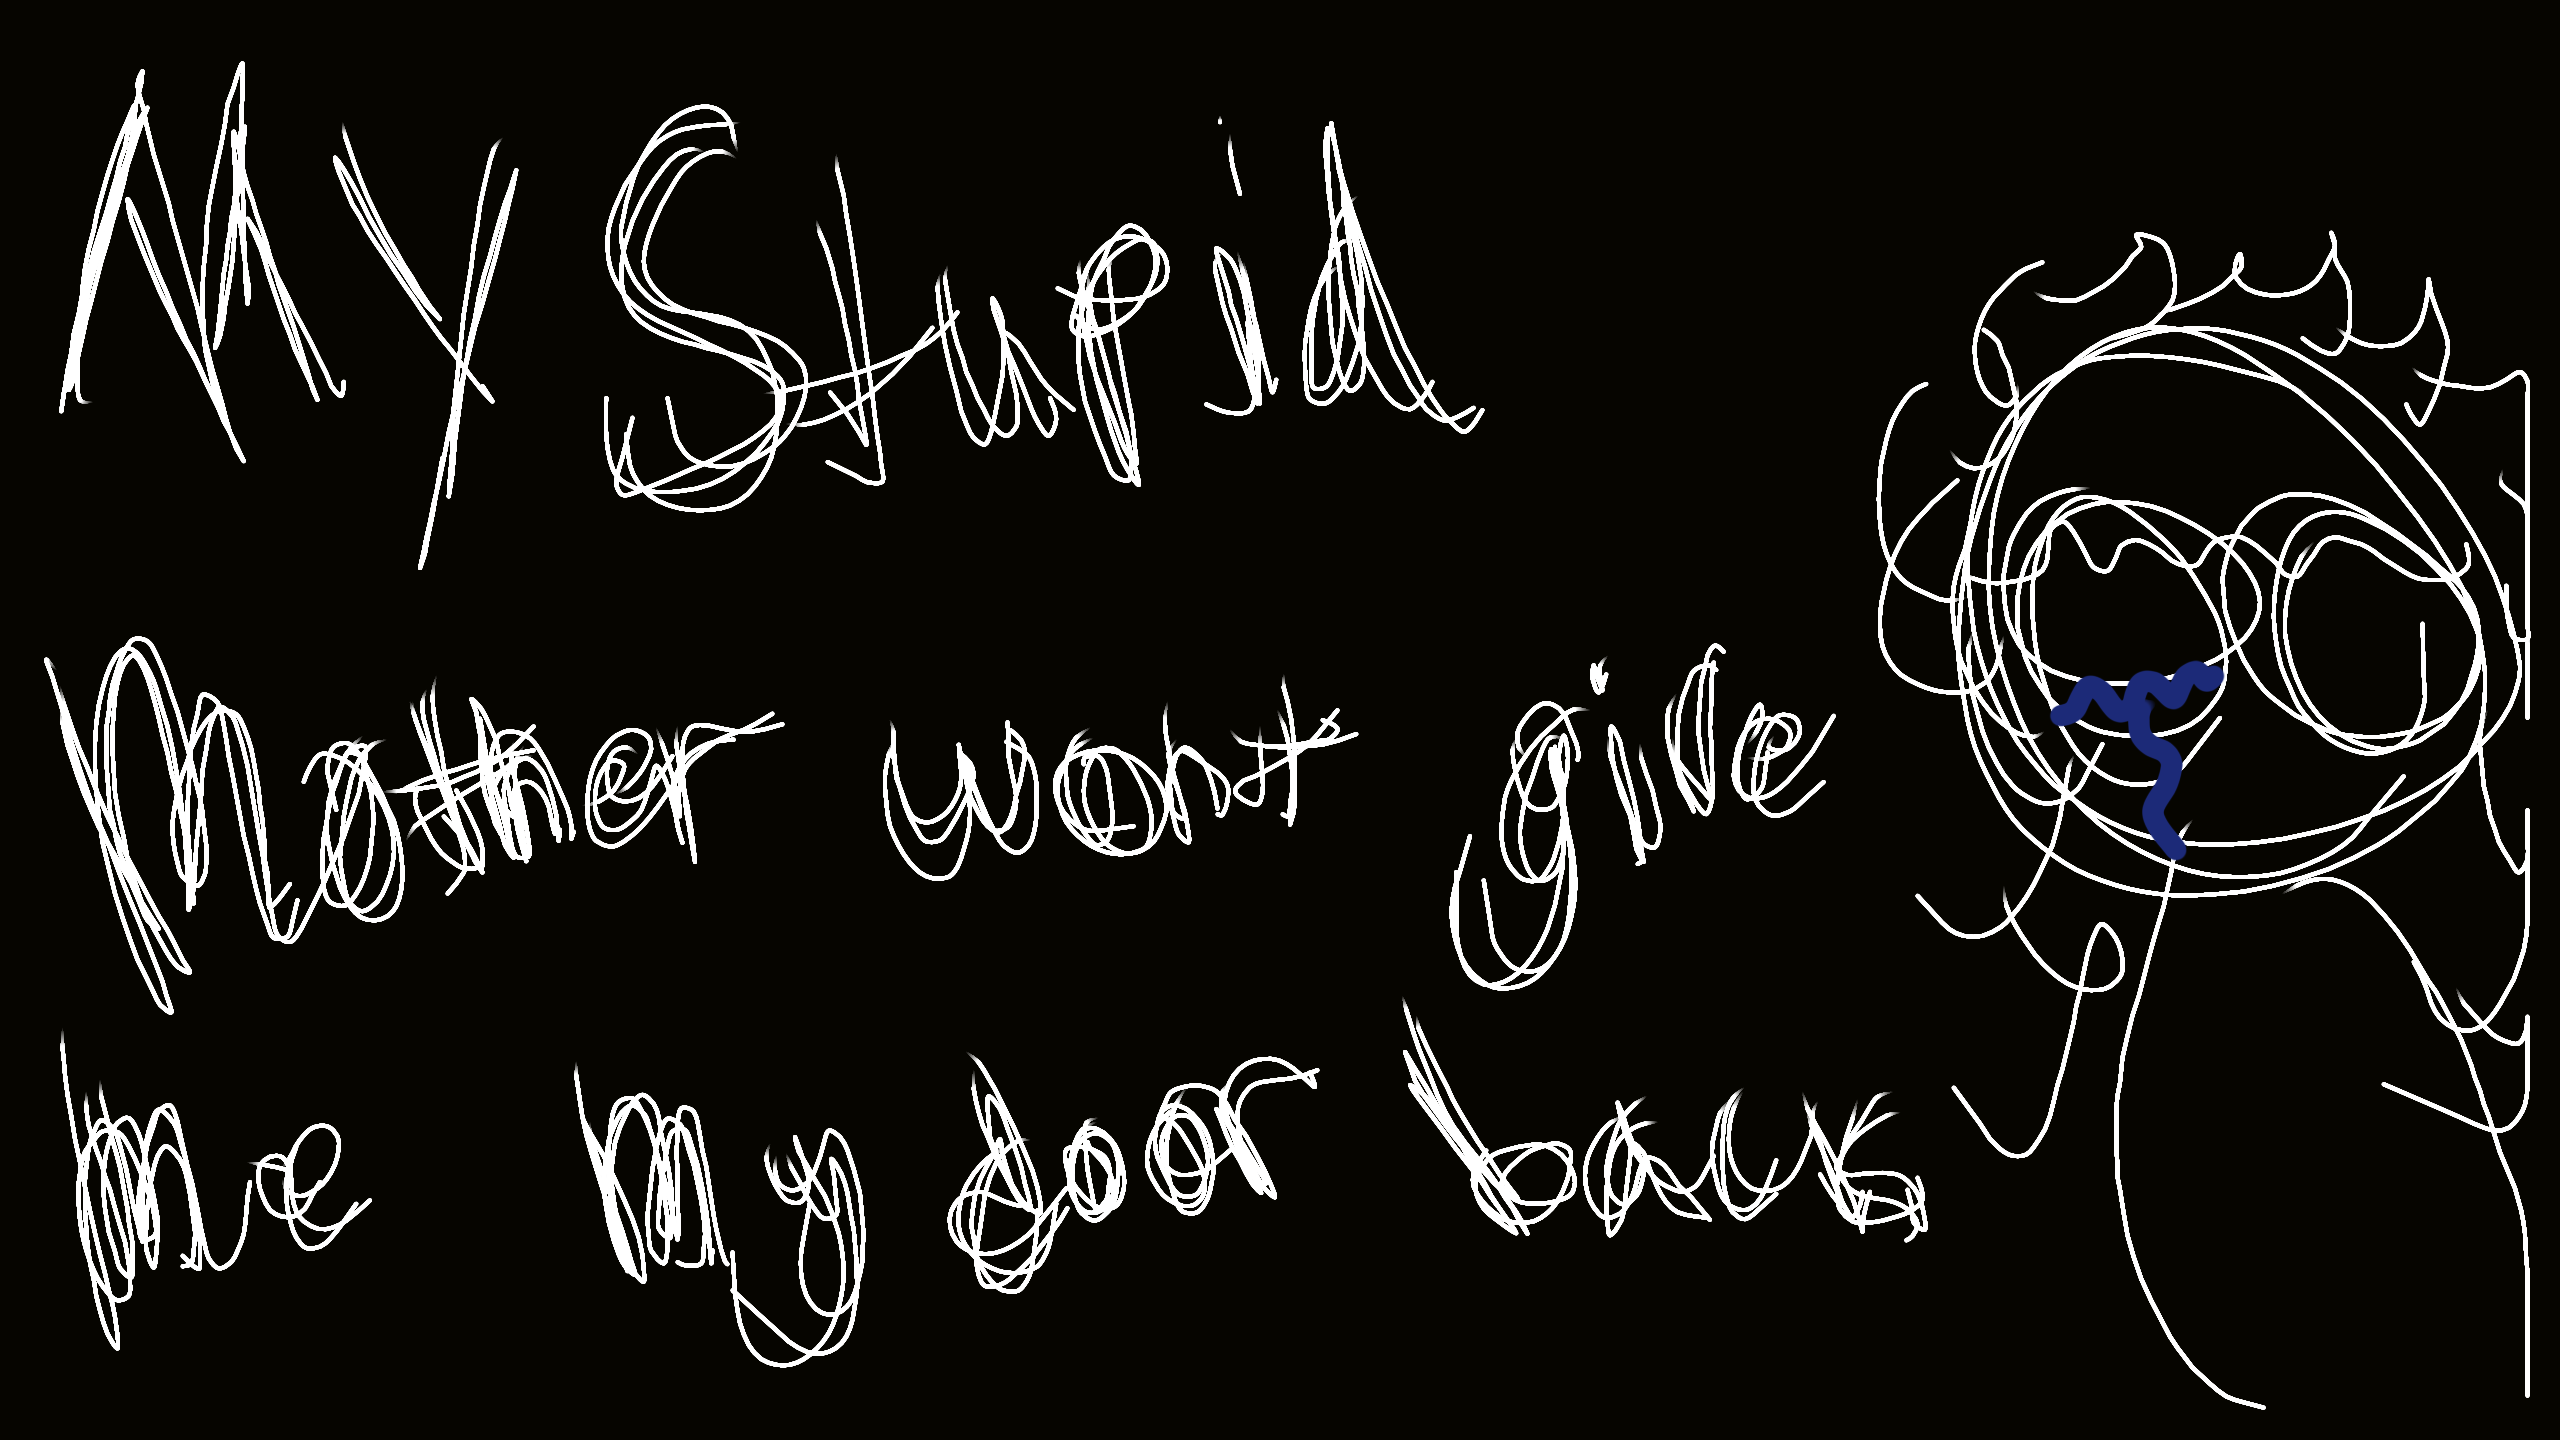 My Stupid
Mother wont give
me my door back